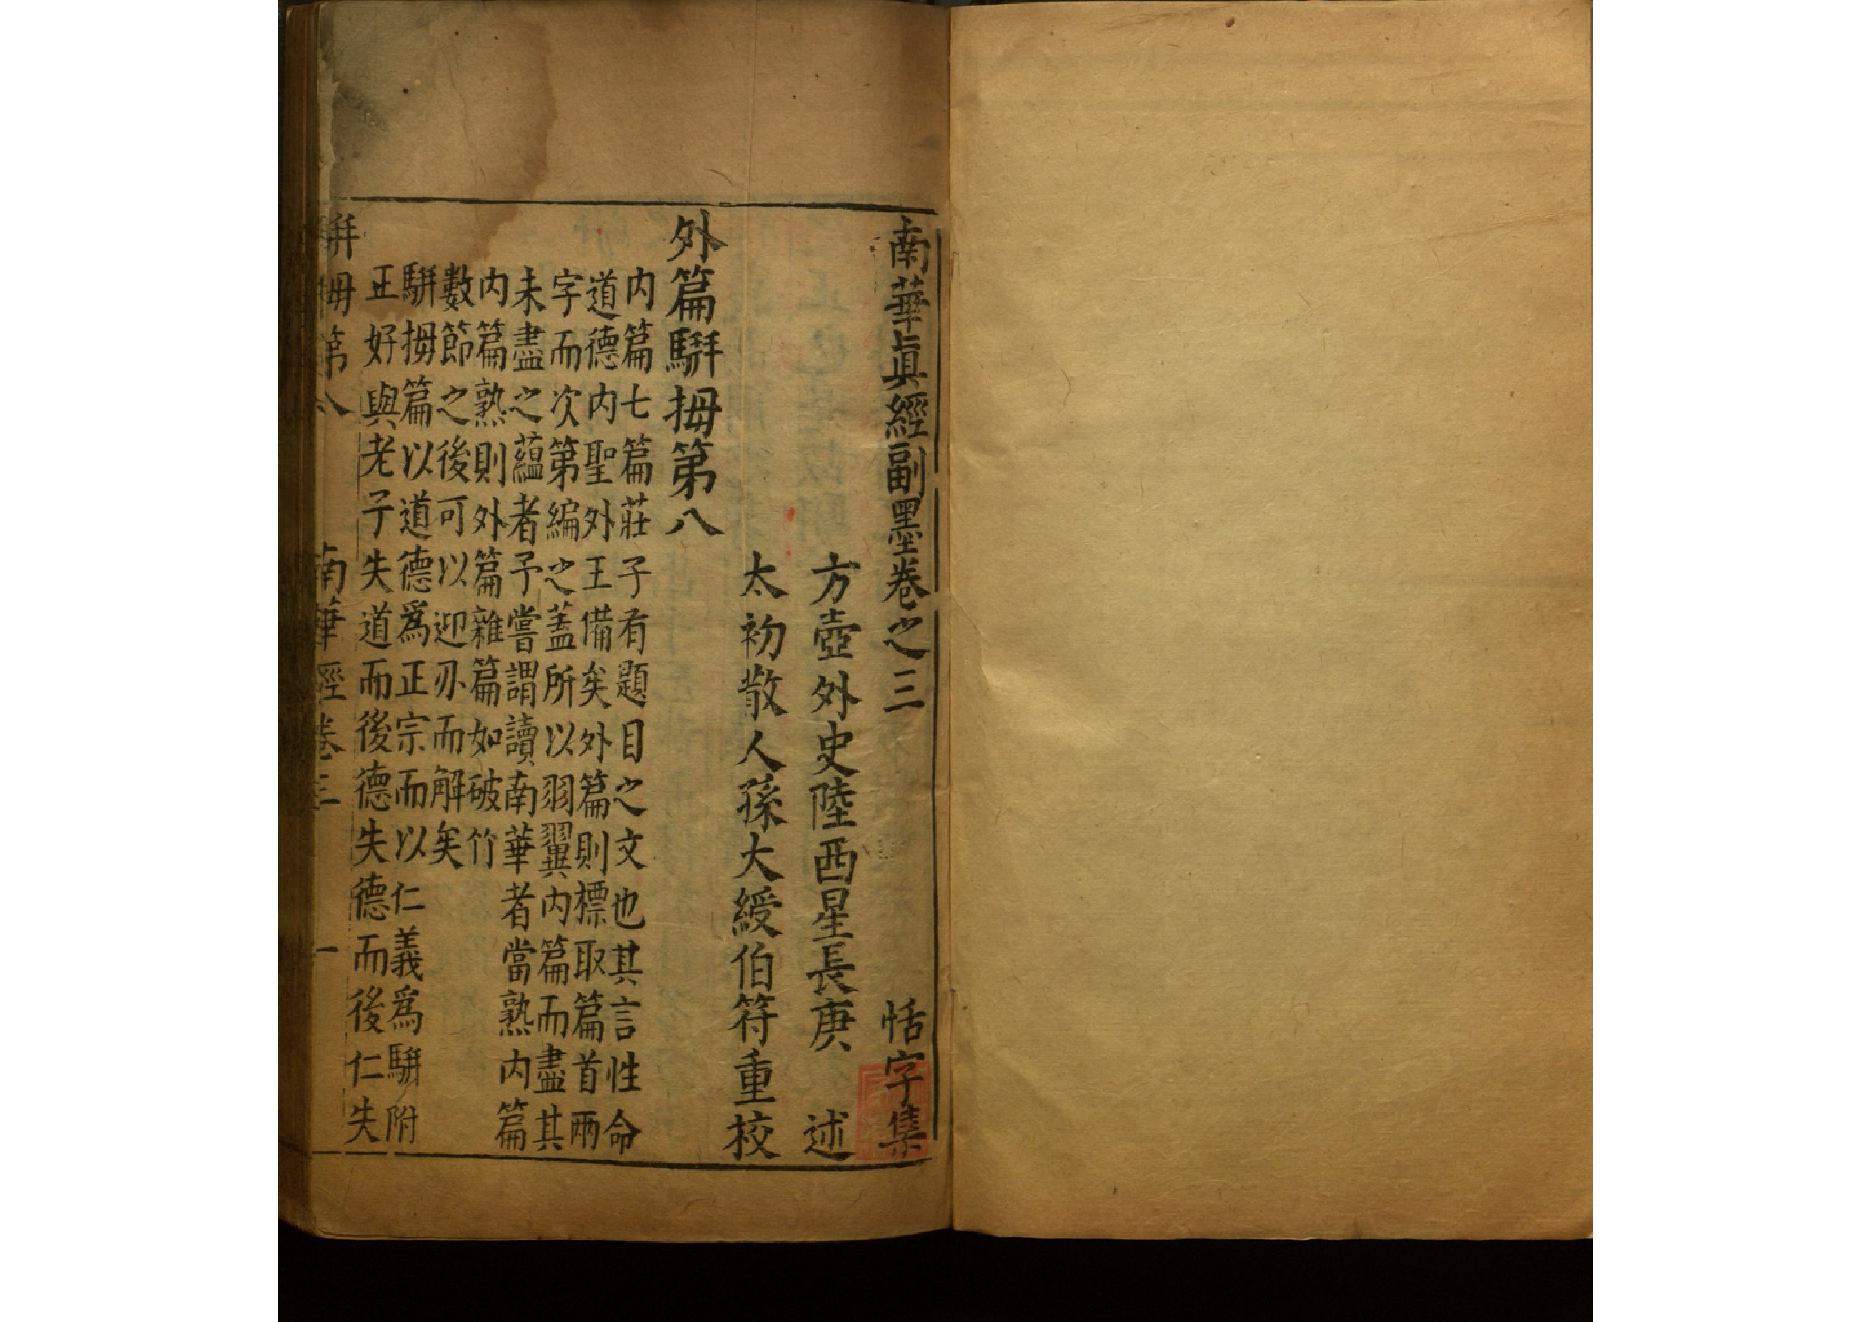 南華眞經副墨卷之三 恬字集
方壺外史陸西星長庚 述
太初散人孫大綬伯符重校
外篇駢拇第八
内篇七篇莊子有題目之文也其言性命
道德内聖外王備矣外篇則標取篇首兩
字而次第編之蓋所以羽翼内篇而盡其
未盡之蘊者予嘗謂讀南華者當熟内篇
内篇熟則外篇雜篇如破竹
數節之後可以迎刃而解矣
駢拇篇以道德爲正宗而以仁義爲駢附
正好與老子失道而後德失德而後仁失
駢拇第八 南華經卷三 一